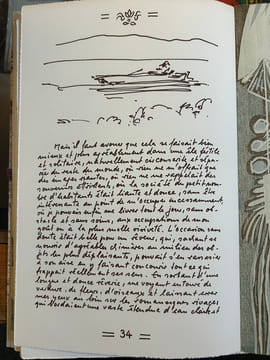 Mais il faut avouer que cela se faisait bien
mieux et plus agréablement dans une île fertile
et solitaire, naturellement circonscrite et sépa-
rée du reste du monde, où rien ne m'offrait que
des images riantes, où rien ne me rappelait des
souvenirs attristants, où la société du petit nom-
bre d'habitants était liante et douce, sans être
intéressante au point de m'occuper incessamment,
où je pouvais enfin me livrer tout le jour, sans ob-
stacle et sans soins, aux occupations de mon
goût ou à la plus molle oisiveté. L'occasion sans
doute était belle pour un rêveur, qui, sachant se
nourrir d'agréables chimères au milieu des ob-
jets les plus déplaisants, pouvait s'en rassasier
à son aise en y faisant concourir tout ce qui
frappait réellement ses sens. En sortant d'une
longue et douce rêverie, me voyant entouré de
verdure, de fleurs, d'oiseaux et laissant errer
mes yeux au loin sur les romanesques rivages
qui bordaient une vaste étendue d'eau claire et
34